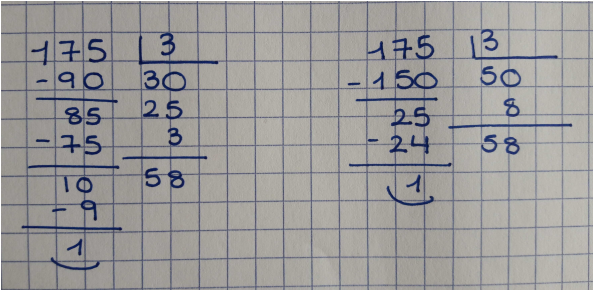 175 3
-90 30
85 25
-75 3
10 58
-9
1
175 3
-150 50
25 8
-24 58
1